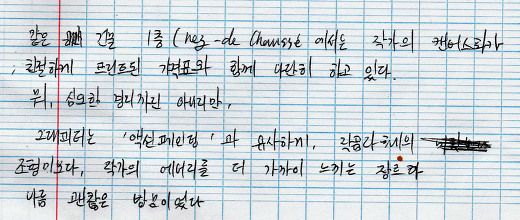 같은 건물 1층 (rez-de Chaussé 에서는 작가의 캔버스화가
친절하게 프린트된 가격표와 함께 나란히 하고 있다.
뭐, 심오한 경지까진 아니지만,
그래피티는 '액션페인팅' 과 유사하게,
조형미보다, 작가의 에너지를 더 가까이 느끼는 장르다
나름 괜찮은 방문이었다